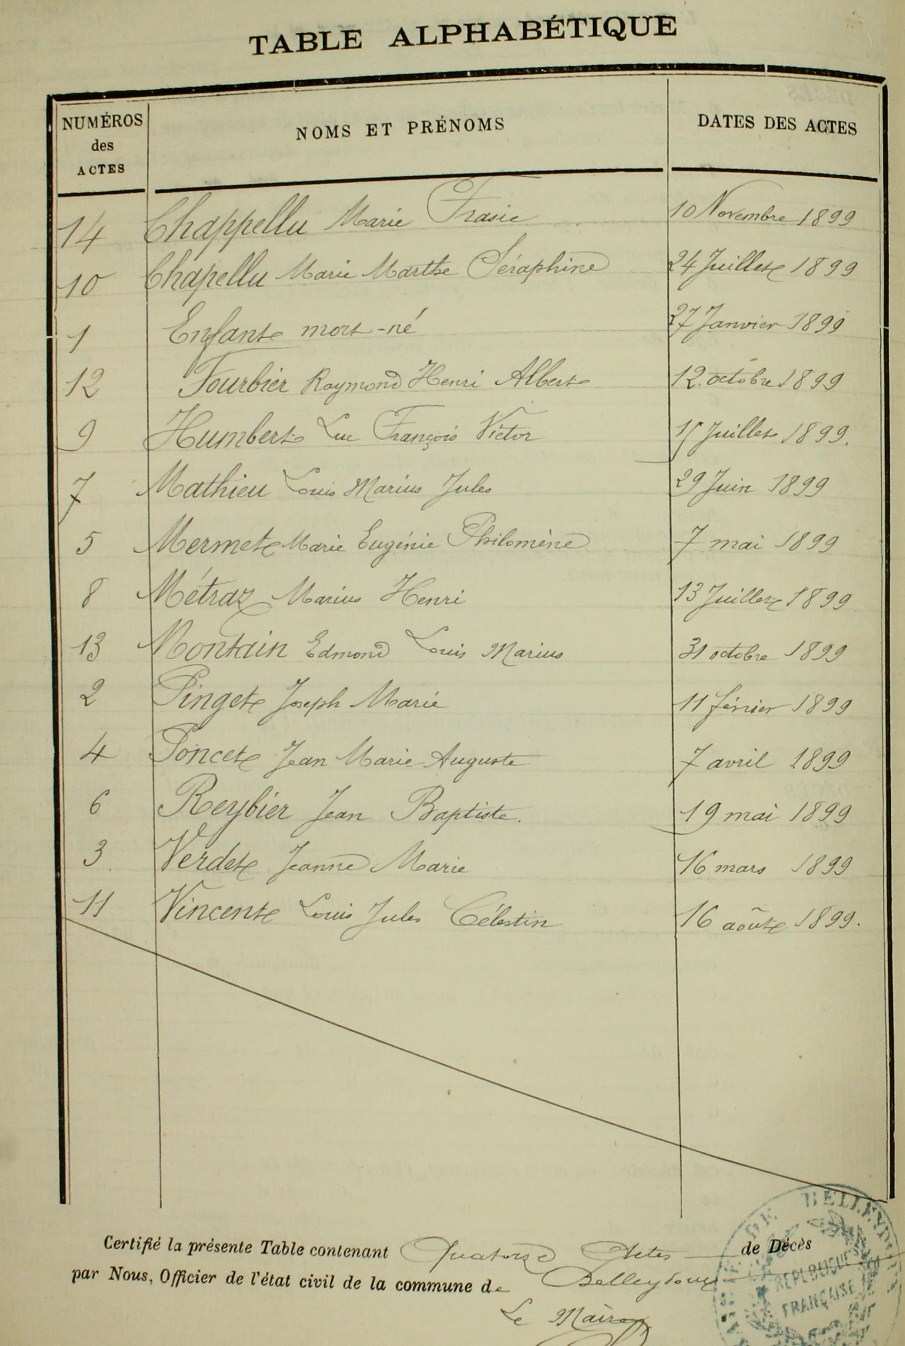 TABLE ALPHABÉTIQUE
NUMÉROS des ACTES NOMS ET PRÉNOMS DATES DES ACTES
14 Chappellu Marie Frasie 10 Novembre 1899
10 Chapellu Marie Marthe Séraphine 24 Juillet 1899
1 Enfant mort-né 27 Janvier 1899
12 Fourbier Raymond Henri Albert 12 octobre 1899
9 Humbert Luc François Victor 15 Juillet 1899.
7 Mathieu Louis Marius Jules 29 Juin 1899
5 Mermet Marie Eugénie Philomène 7 mai 1899
8 Métraz Marius Henri 13 Juillet 1899
13 Montain Edmond Louis Marius 31 octobre 1899
2 Pinget Joseph Marie 11 février 1899
4 Poncet Jean Marie Auguste 7 avril 1899
6 Reybier Jean Baptiste. 19 mai 1899
3 Verdet Jeanne Marie 16 mars 1899
11 Vincent Louis Jules Célestin 16 août 1899.
Certifié la présente Table contenant Quatorze Actes de Décès
par Nous, Officier de l'état civil de la commune de Belleydoux
Le Maire
DE BELLEYDOUX
RÉPUBLIQUE
FRANÇAISE